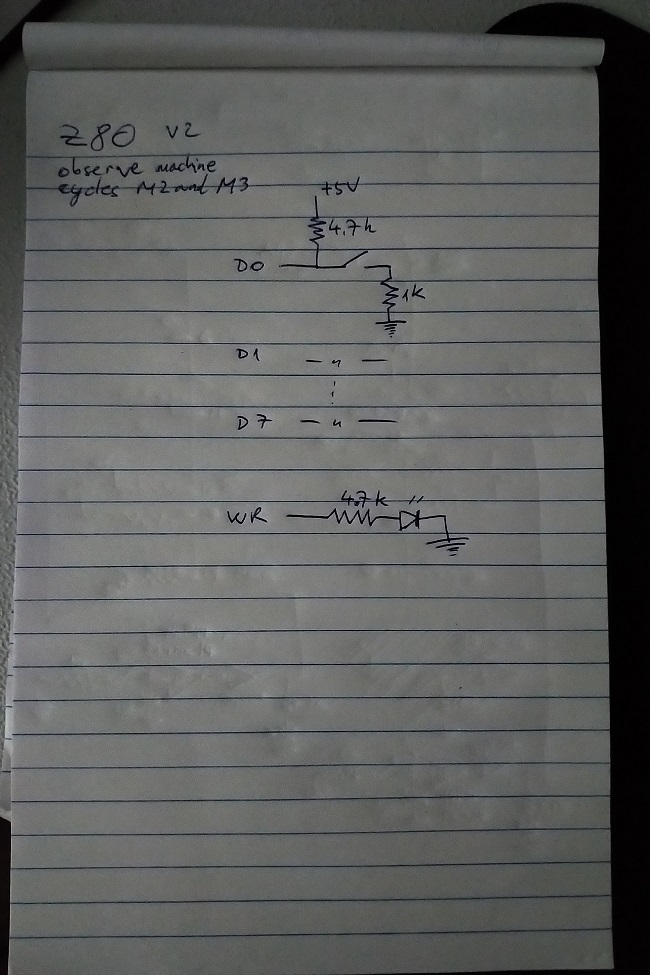 Z80 V2
observe machine
cycles M2 and M3
+5V
4.7k
D0
1K
D1 — " —
D7 — " —
4.7k
WR